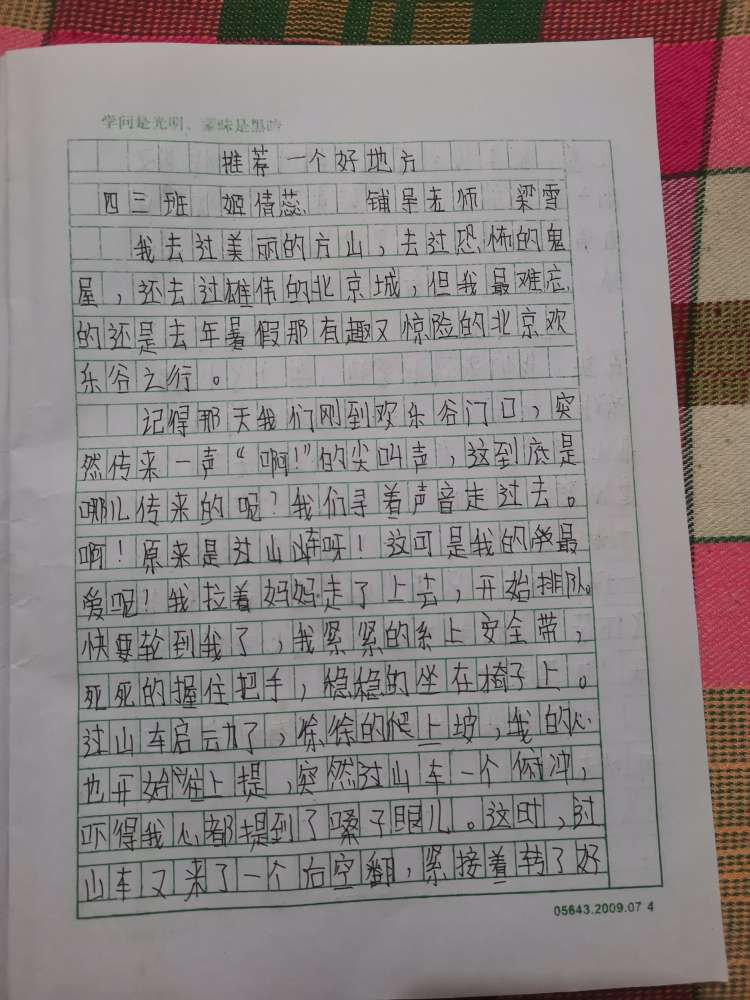 学问是光明、蒙昧是黑暗
推荐一个好地方
四三班 姬倩蕊 铺导老师 梁雪
我去过美丽的方山，去过恐怖的鬼
屋，还去过雄伟的北京城，但我最难忘
的还是去年暑假那有趣又惊险的北京欢
乐谷之行。
记得那天我们刚到欢乐谷门口，突
然传来一声“啊！”的尖叫声，这到底是
哪儿传来的呢？我们寻着声音走过去。
啊！原来是过山车呀！这可是我的最
爱呢！我拉着妈妈走了上去，开始排队。
快要轮到我了，我紧紧的系上安全带，
死死的握住把手，稳稳的坐在椅子上。
过山车启动了，徐徐的爬上坡，我的心
也开始往上提，突然过山车一个俯冲，
吓得我心都提到了嗓子眼儿。这时，过
山车又来了一个后空翻，紧接着转了好
05643.2009.07 4